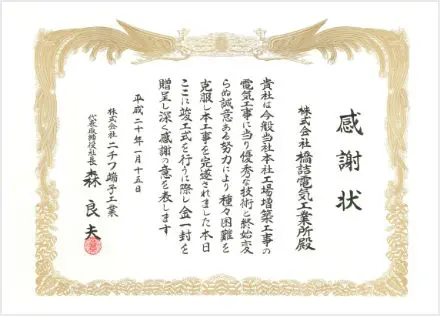 感謝状
株式会社橋詰電気工業所殿
貴社は今般当社本社工場増築工事の
電気工事に当り優秀な技術と終始変
らぬ誠意ある努力により種々困難を
克服し本工事を完遂されました本日
ここに竣工式を行うに際し金一封を
贈呈し深く感謝の意を表します
平成二十年一月十五日
株式会社ニチフ端子工業
代表取締役社長 森良夫